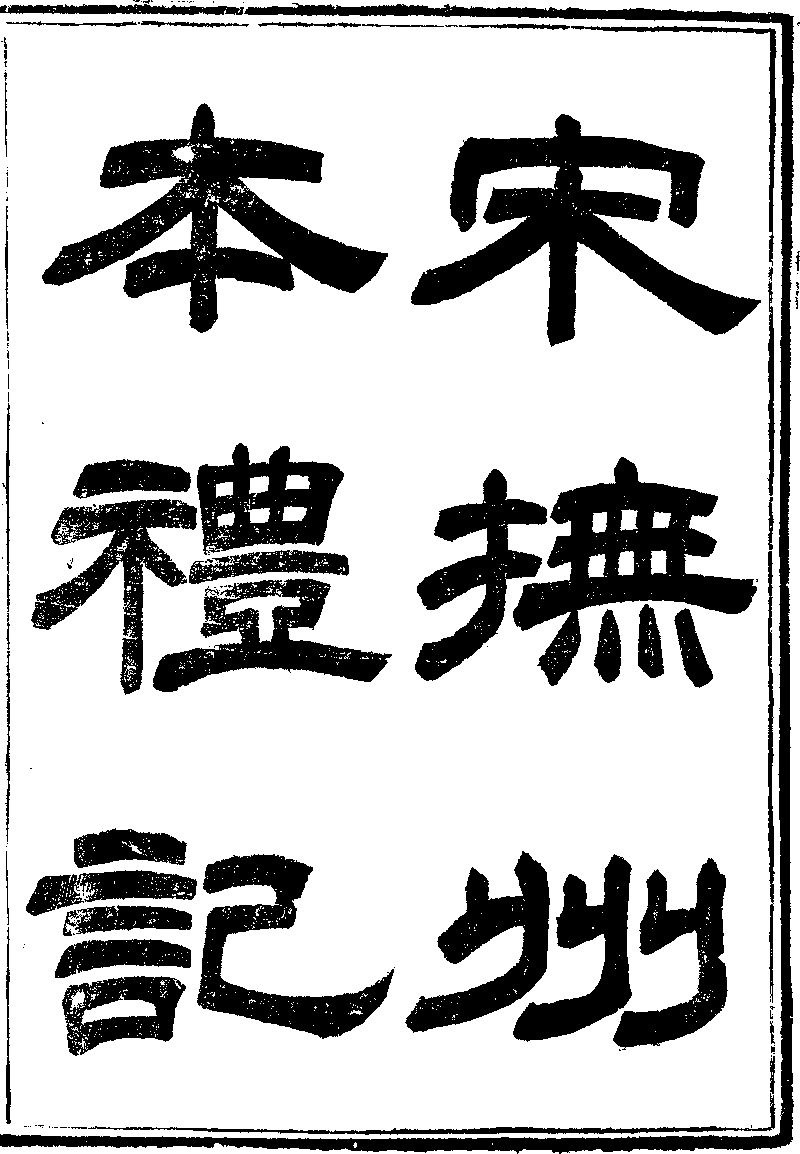 宋撫州
本禮記